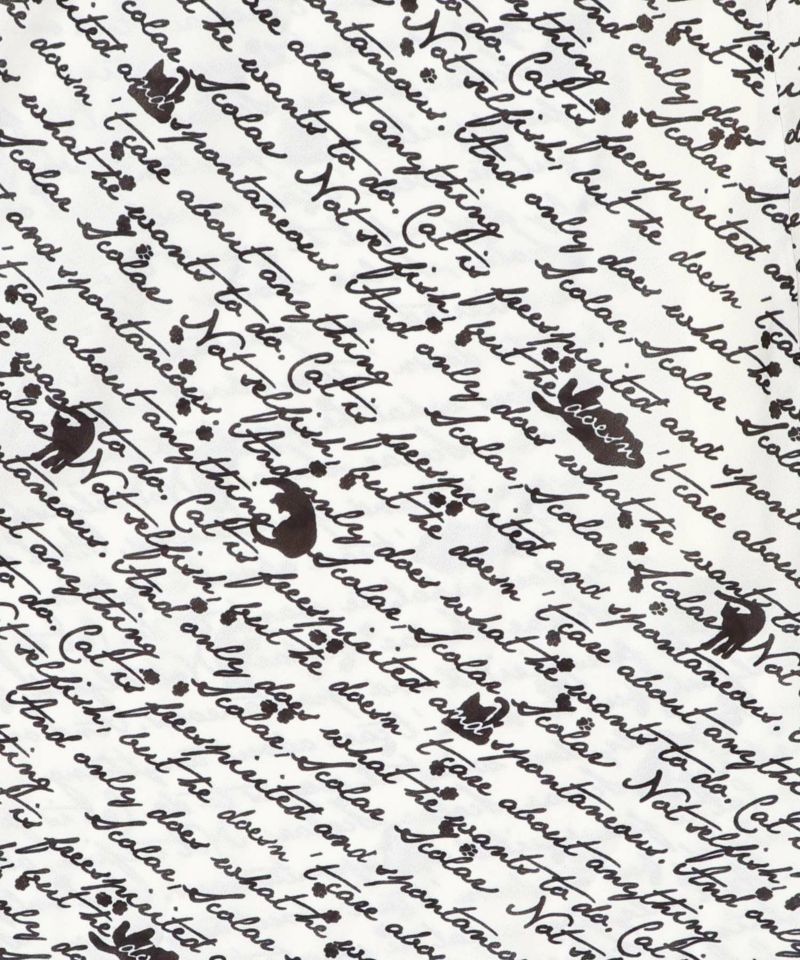 but he
And only does
anything Scolar, Scolar
to do. Cat is freespirited and
Not selfish, but he doesn 't care
spontaneous. And only does what he
care about anything Scolar, Scolar Scolar
he wants to do. Cat is freespirited and sponta
Scolar Scolar Not selfish, but he doesn 't care about
spirited and spontaneous. And only does what he wants to
he doesn 't care about anything Scolar, Scolar Scolar Not
what he wants to do. Cat is freespirited and spontaneous.
Scolar, Scolar Scolar Not selfish, but he doesn 't care about anything
and spontaneous. And only does what he wants to do. Cat
't care about anything Scolar, Scolar Scolar Not selfish,
he wants to do. Cat is freespirited and spontaneous. And only
Scolar Not selfish, but he doesn 't care about anything
taneous. And only does what he wants to do. Cat is
anything Scolar, Scolar Scolar Not
to do. Cat is freespirited and spontaneo
selfish, but he doesn 't care abou
And only does what he
thing Scolar, Scolar
is freespirited
but he doesn
only do